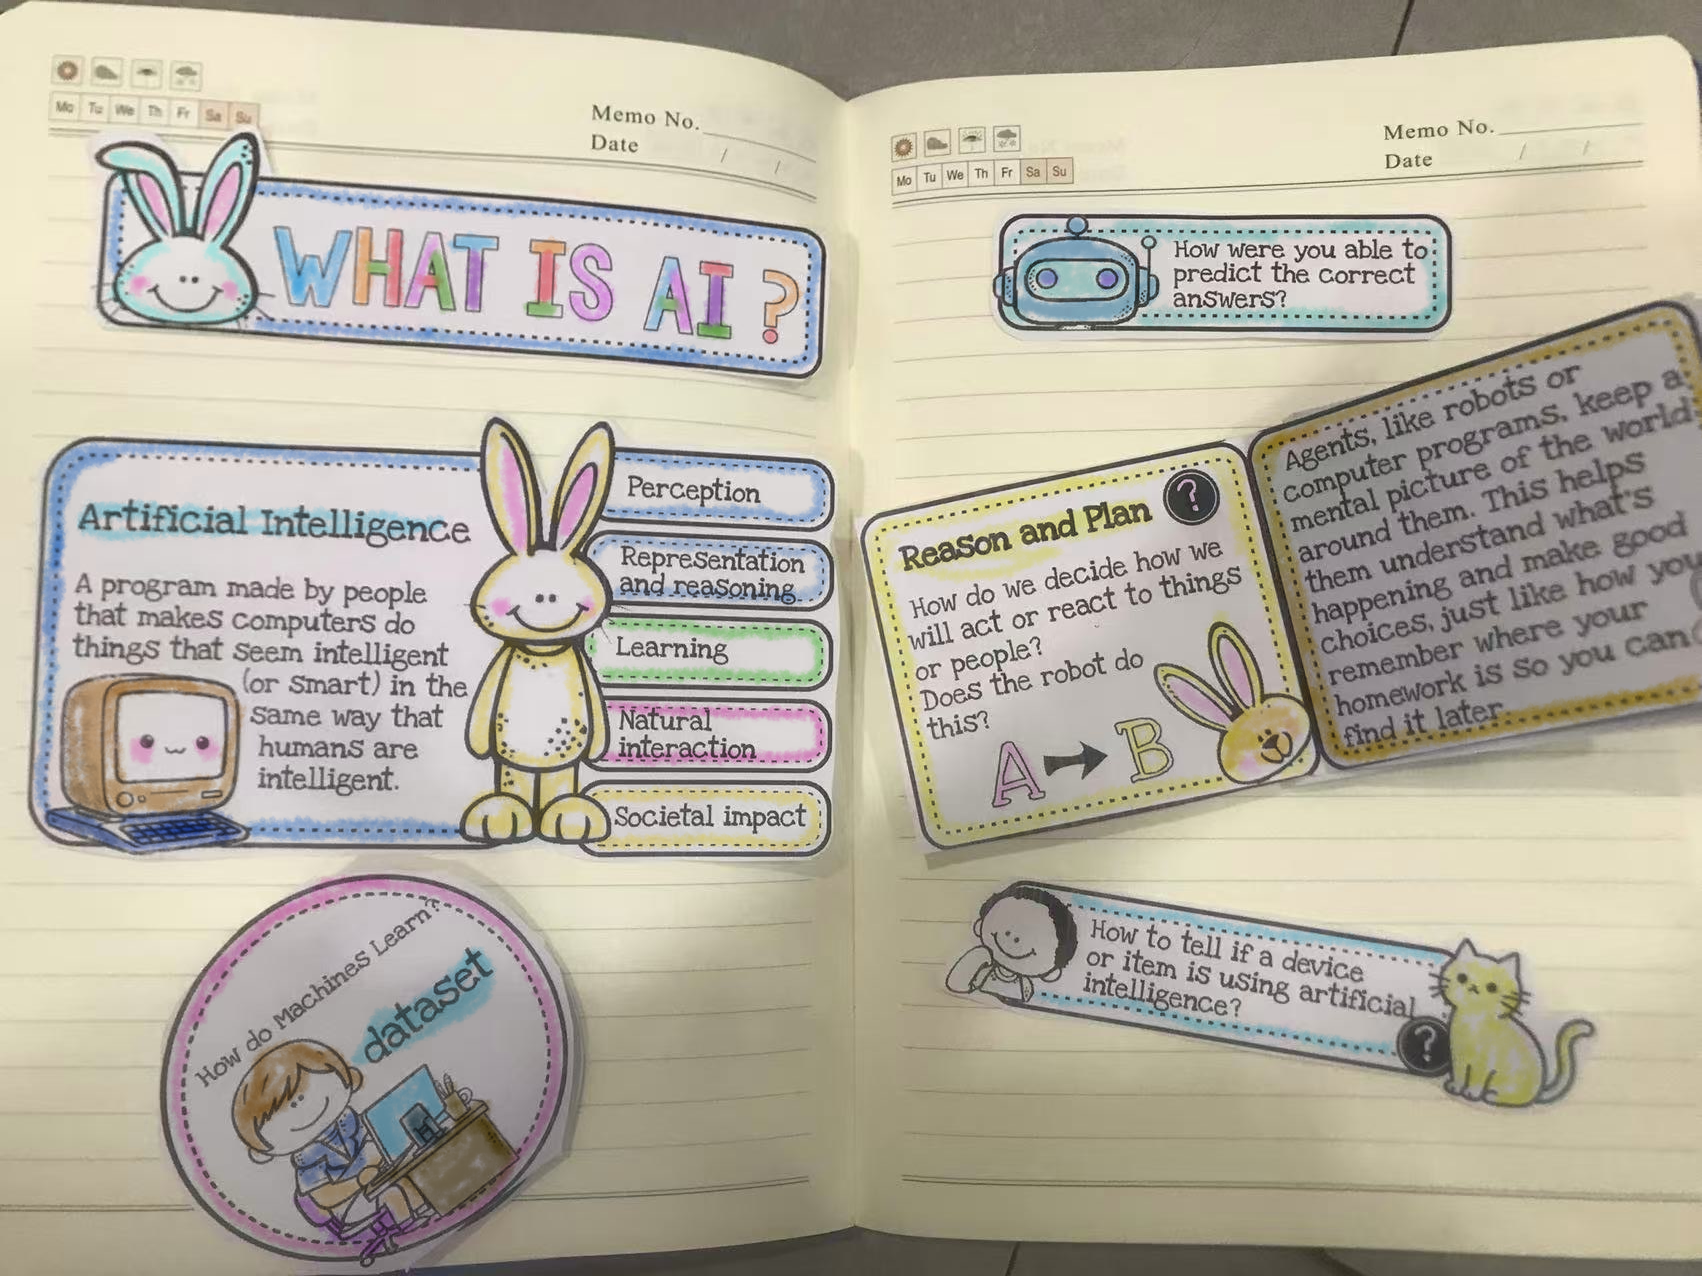 Mo Tu We Th Fr Sa Su
Memo No.
Date / /
WHAT IS AI?
Artificial Intelligence
A program made by people
that makes computers do
things that seem intelligent
(or smart) in the
same way that
humans are
intelligent.
Perception
Representation
and reasoning
Learning
Natural
interaction
Societal impact
How do Machines Learn?
dataset
Mo Tu We Th Fr Sa Su
Memo No.
Date / /
How were you able to
predict the correct
answers?
Reason and Plan
?
How do we decide how we
will act or react to things
or people?
Does the robot do
this?
A B
Agents, like robots or
computer programs, keep a
mental picture of the world
around them. This helps
them understand what's
happening and make good
choices, just like how you
remember where your
homework is so you can
find it later.
How to tell if a device
or item is using artificial
intelligence?
?